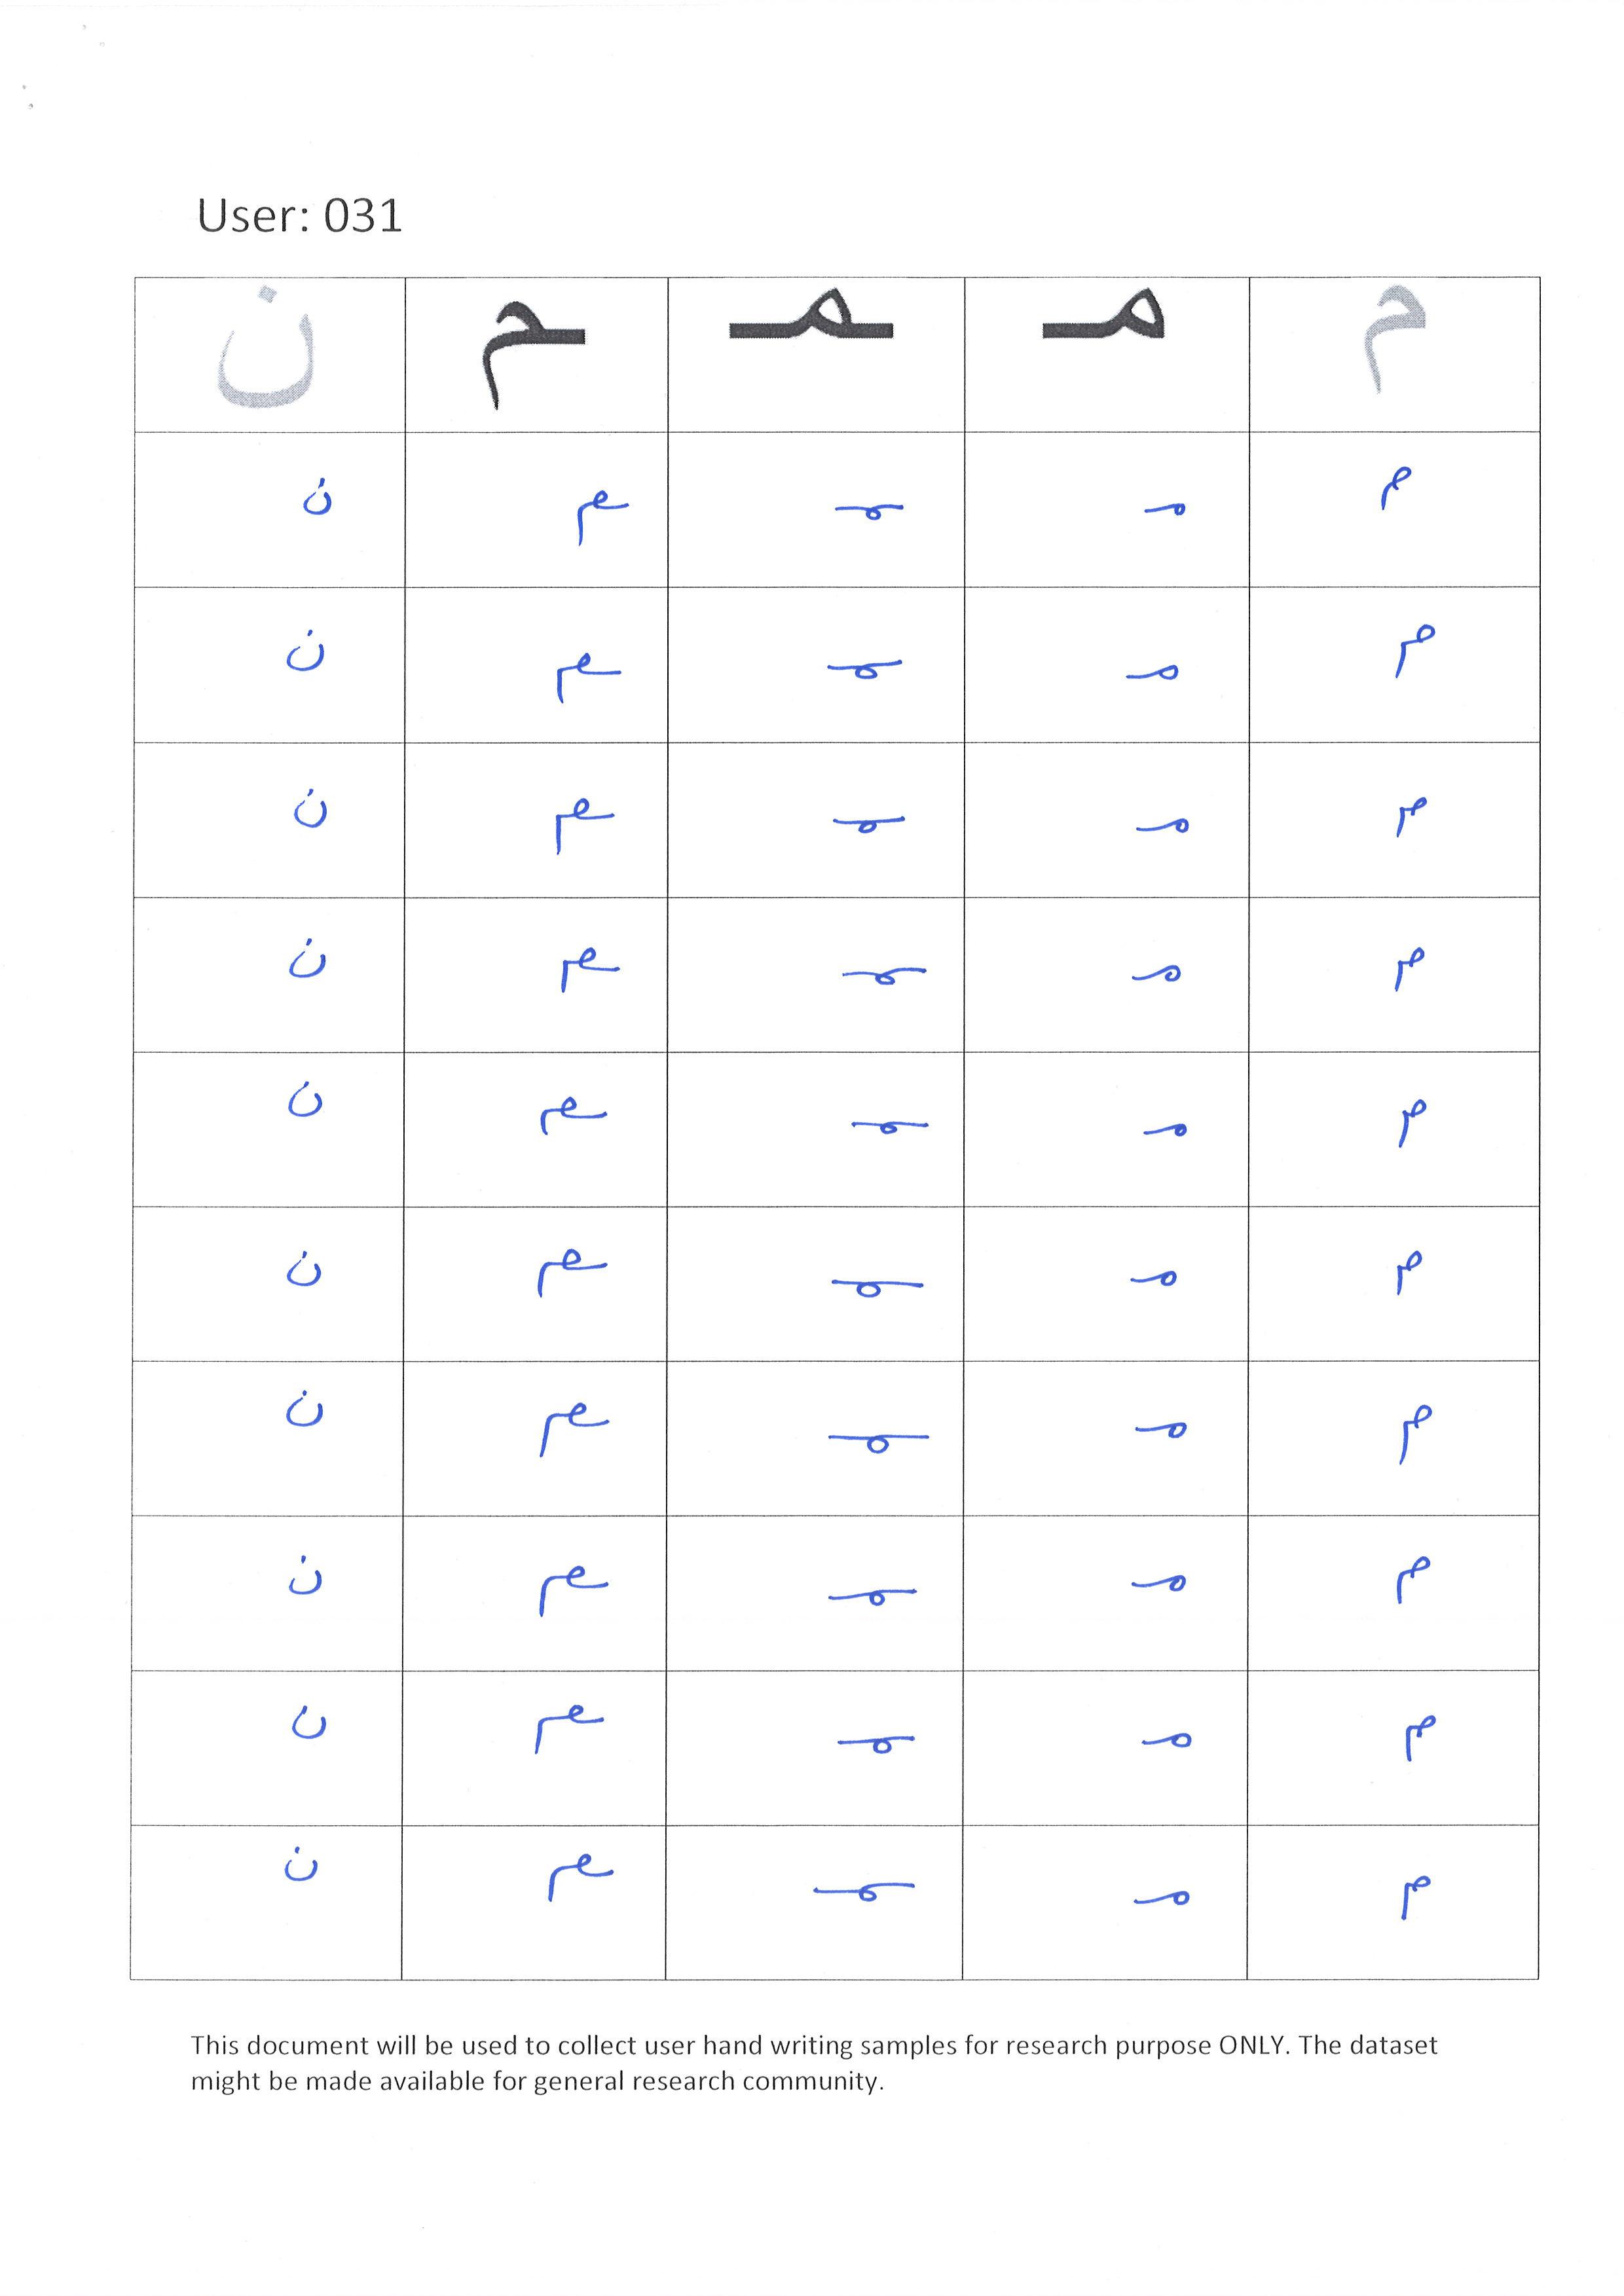 User: 031
م مـ ـمـ ـم ن
م مـ ـمـ ـم ن
م مـ ـمـ ـم ن
م مـ ـمـ ـم ن
م مـ ـمـ ـم ن
م مـ ـمـ ـم ن
م مـ ـمـ ـم ن
م مـ ـمـ ـم ن
م مـ ـمـ ـم ن
م مـ ـمـ ـم ن
م مـ ـمـ ـم ن
This document will be used to collect user hand writing samples for research purpose ONLY. The dataset
might be made available for general research community.